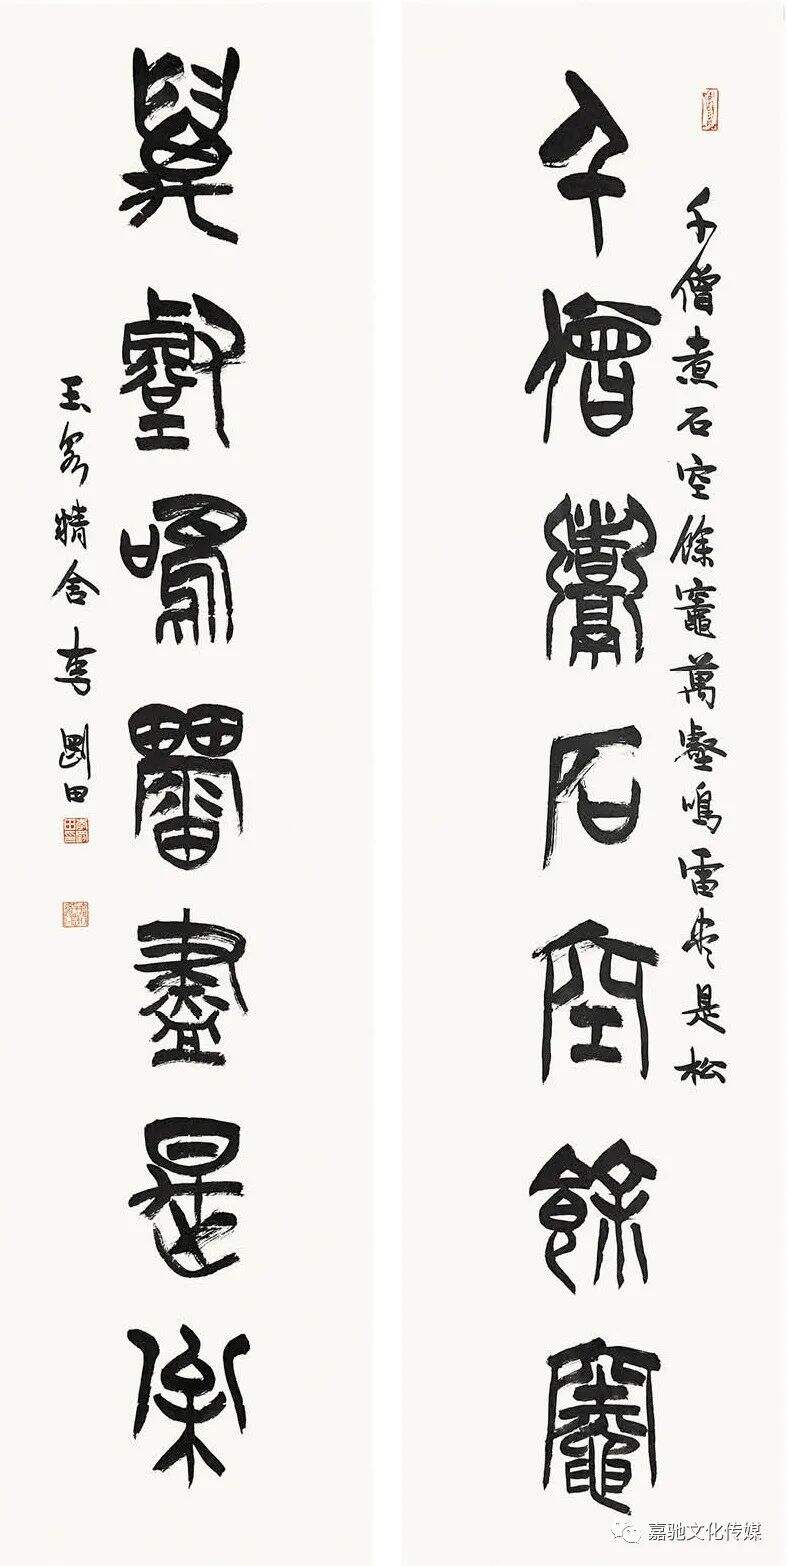 千僧煮石空餘竈
千僧煮石空餘竈萬壑鳴雷盡是松
萬壑鳴雷盡是松
精舍李剛田
嘉驰文化传媒